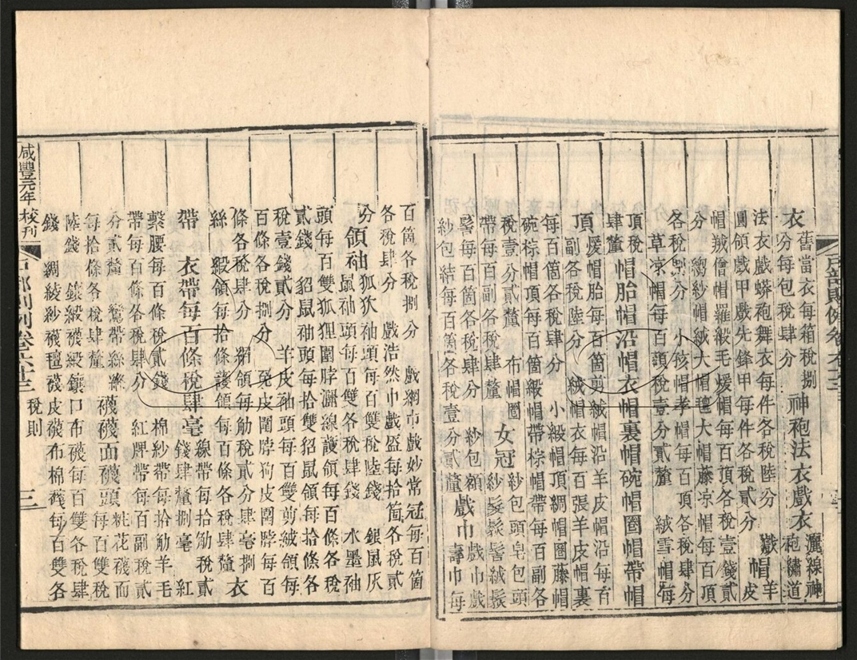 衣 舊當衣每箱稅捌分每包稅肆分 神袍法衣戲衣 灑線神袍繡道
法衣戲蟒袍舞衣每件各稅陸分
圓領戲甲戲先鋒甲各稅貳分 戲帽 皮
帽羢僧帽羅緞毛煖帽每百頂各稅壹錢貳
分 絨大帽 大帽藤凉帽每百頂
各稅捌分 小孩帽孝帽每百頂各稅肆分
草凉帽每百頂各稅壹分貳釐 絨雪帽每
頂稅肆釐 帽胎帽沿帽衣帽裏帽碗帽圈帽帶帽
頂 煖帽胎每百箇剪絨帽沿羊皮帽沿每百
副各稅陸分 絨帽衣每百張羊皮帽裏
每百箇各稅肆分 小緞帽頂綢帽圈藤帽
碗棕帽頂每百箇緞帽帶棕帽帶每百副各
稅壹分貳釐 布帽圈 女冠 紗包頭皂包頭
帶每百副各稅肆釐 紗髮髻絨髮
髻每百箇各稅肆分 紗包額 戲巾 戲巾戲
紗包結每百箇各稅壹分貳釐 壽巾每
百箇各稅捌分 戲網巾戲妙常冠每百箇
各稅肆分 戲浩然巾戲盔每拾箇各稅貳
分 領袖 狐狄袖頭每百雙稅陸錢 銀鼠灰
鼠袖頭每百雙各稅肆錢 水墨袖
頭每百雙狐狸圍脖獺線護領每百條各稅
貳錢 貂鼠袖頭每拾雙貂鼠領每拾條各
稅壹錢貳分 羊皮袖頭每百雙剪絨領每
百條各稅捌分 兔皮圍脖狗皮圍脖每百
條各稅肆分 網領每觔稅貳分肆毫捌
絲 緞領每拾條綾領每百條各稅肆釐 衣
帶 衣帶每百條稅肆毫 線帶每拾觔稅貳
錢肆釐捌毫 紅
繫腰每百條稅貳錢 棉紗帶每拾觔羊毛
帶每百條各稅肆分 紅牌帶每百副稅貳
分貳釐 鸞帶絲縧每百
每拾條各稅肆釐 襪 襪面襪頭 桃花襪面
每百雙稅
陸錢 銀緞襪緞銀口布襪每百雙各稅肆
錢 綢綾紗襪氊襪皮襪布棉襪每百雙各
咸豐元年校刊
戶部則例卷
稅則
三